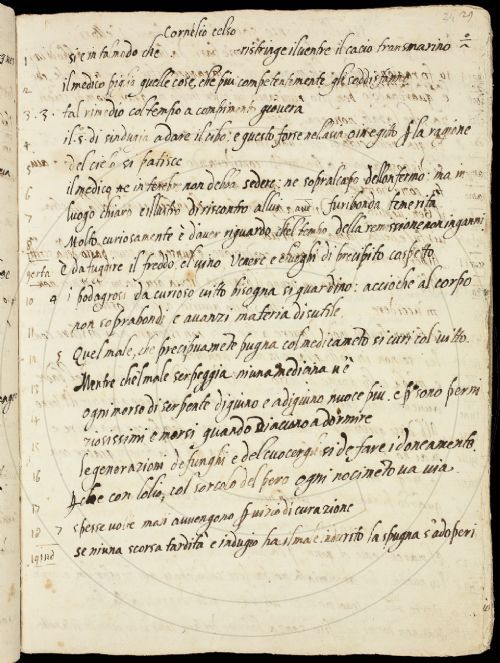 24 29
Cornelio celso
si e in tal modo che ristringe il ventre il cacio transmarino
il medico piglia quelle cose, che piu competentemente gli soddisfanno
3 . 3 . tal rimedio col tempo a compimento gioverà
il 5. di s'indugia a dare il cibo: e questo forse nella sua ⁊ la ragione
del cielo si patisce
il medico ne in tenebre non debba sedere: ne sopra'l capo dell'infermo: ma in
luogo chiaro e illustro di riscontro furibonda temerità
Molto curiosamente è d'aver riguardo che'l tempo della remissione non inganni
È da fugire il freddo, el vino Venere e i luoghi di
10 4 i podagrosi da curioso vitto bisogna si guardino: accioche al corpo
non soprabondi e avanzi materia disutile
5 Quel male, che precipuamente pugna col medicamento si curi col vitto.
Mentre che'l male serpeggia niuna mediana n'è
ogni morso di serpente digiuno e a digiuno nuoce piu. e però sono perni
ziosissimi e morsi quando Diacono a dormire
le generazioni de funghi e del si de fare idoneamente
che con l'olio, col sorcolo del pero ogni nocimento va via.
18 7 spesse volte mali avvengono per vizio di curazione
se niuna scorsa tardità e indugio ha il male indurito la spugna s'adoperi